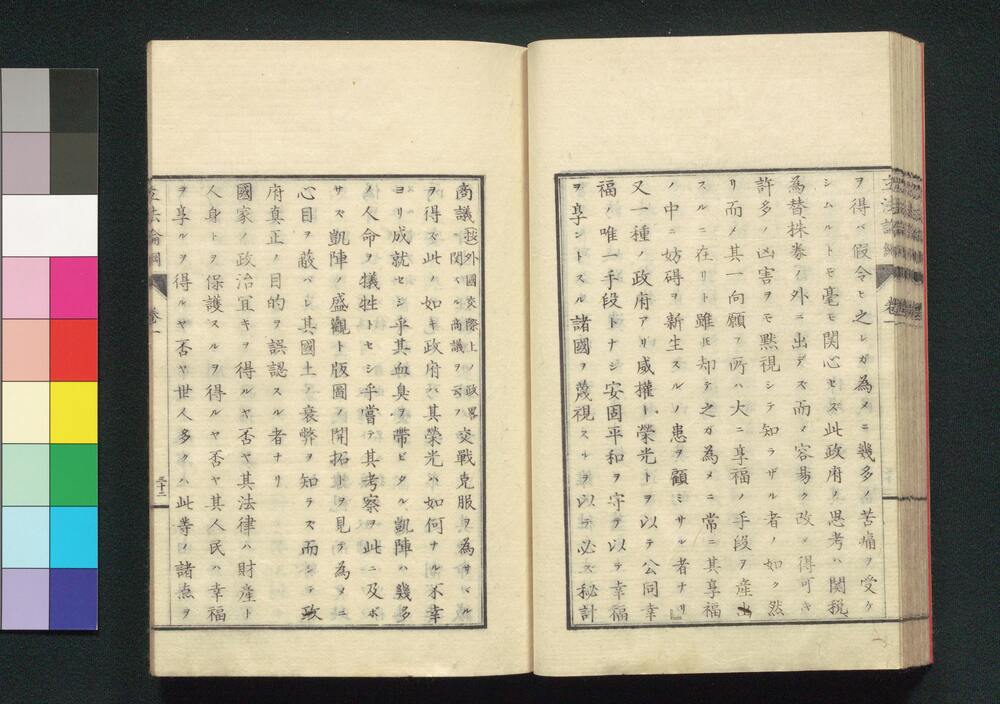 立法論綱
卷一
ヲ得バ假令ヒ之レガ為メニ幾多ノ苦痛ヲ受ケ
シムルトモ毫モ関心セズ此政府ノ思考ハ関税
為替株券ノ外ニ出デズ而メ容易ク改メ得可キ
許多ノ凶害ヲモ黙視シテ知ラザル者ノ如ク然
リ而メ其一向願フ所ハ大ニ享福ノ手段ヲ産出
スルニ在リト雖𪜈却テ之ガ為メニ常ニ其享福
ノ中ニ妨碍ヲ新生スルノ患ヲ顧ミサル者ナリ』
又一種ノ政府アリ威權ト榮光トヲ以テ公同幸
福ノ唯一手段トナシ安固平和ヲ守テ以テ幸福
ヲ享ントスル諸國ヲ蔑視スルヲ以テ必ズ秘計
商議 按外國交際上ノ政畧ニ関スル商議ヲ云フ 交戰克服ヲ為サヾル
ヲ得ズ此ノ如キ政府ハ其榮光ハ如何ナル不幸
ヨリ成就セシ乎其血臭ヲ帶ビタル凱陣ハ幾多
ノ人命ヲ犠牲トセシ乎嘗テ其考察ヲ此ニ及ボ
サズ凱陣ノ盛觀ト版圖ノ開拓トヲ見テ為メニ
心目ヲ蔽ハレ其國土ノ衰弊ヲ知ラズ而シテ政
府真正ノ目的ヲ誤認スル者ナリ
國家ノ政治宜キヲ得ルヤ否ヤ其法律ハ財産ト
人身トヲ保護スルヲ得ルヤ否ヤ其人民ハ幸福
ヲ享ルヲ得ルヤ否ヤ世人多クハ此等ノ諸点ヲ
立法論綱
卷一
三十二